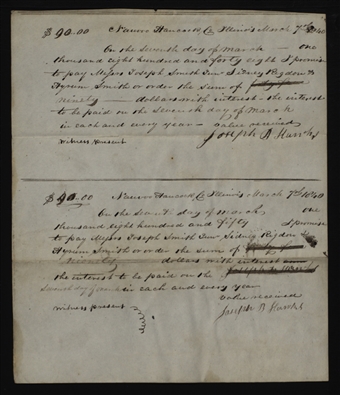 $90.00 Nauvoo Hancock Co Illinois March 7th 1840
On the Seventh day of March — one
thousand eight hundred and forty eight I promise
to pay Messrs Joseph Smith Jun Sidney Rigdon &
Hyrum Smith or order the sum of
ninety — dollars with interest — the interest
to be paid on the Seventh day of March
in each and every year — value received
witness present Joseph A
$90.00 Nauvoo Hancock Co Illinois March 7th 1840
On the Seventh day of March one
thousand eight hundred and fifty I promise
to pay Messrs Joseph Smith Jun Sidney Rigdon &
Hyrum Smith or order the sum of
ninety dollars with interest
the interest to be paid on the
in each and every year
value received
witness present Joseph